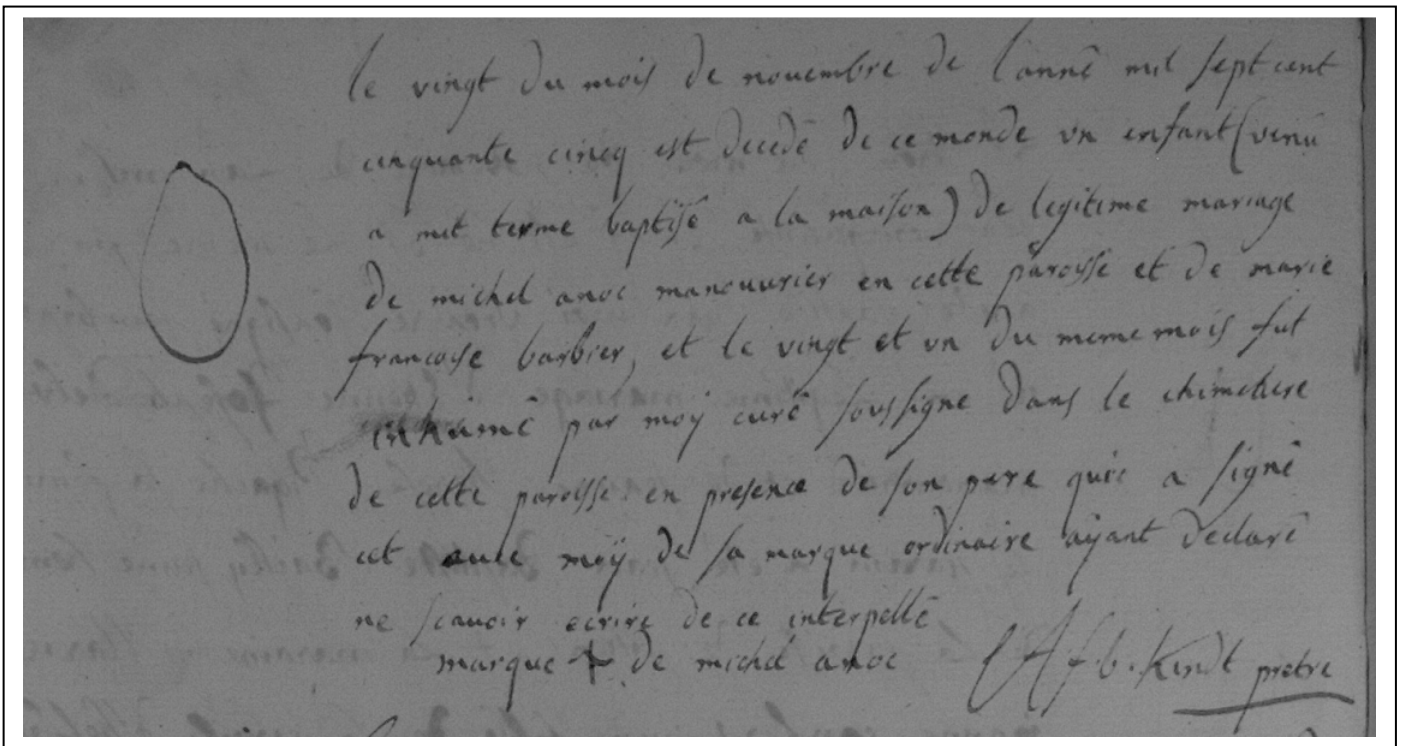 le vingt du mois de novembre de l'anné mil sept cent
cinquante cincq est decedé de ce monde un enfant (venu
a mit terme baptisé a la maison) de legitime mariage
de michel anoc manouvrier en cette paroisse et de marie
francoise barbier, et le vingt et un du meme mois fut
inhumé par moÿ curé soussigné dans le chimetiere
de cette paroisse en presence de son pere qui a signé
cet avec moÿ de sa marque ordinaire aÿant declaré
ne scavoir ecrire de ce interpellé
marque + de michel anoc f. b. Kindt pretre